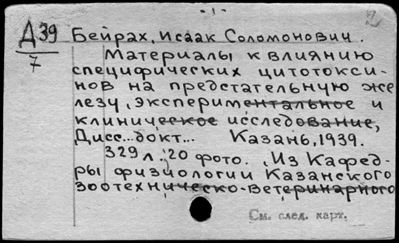 - 1 -
Д39
7
Бейрах, Исаак Соломонович.
Материалы к влиянию
специфических цитотокси-
нов на предстательную же
лезу, экспериментальное и
клиническое исследование,
Дисс...докт... Казань, 1939.
329 л., 20 фото. „Из Кафед-
ры физиологии Казанского
зоотехническо-ветеринарного
См. след. карт.